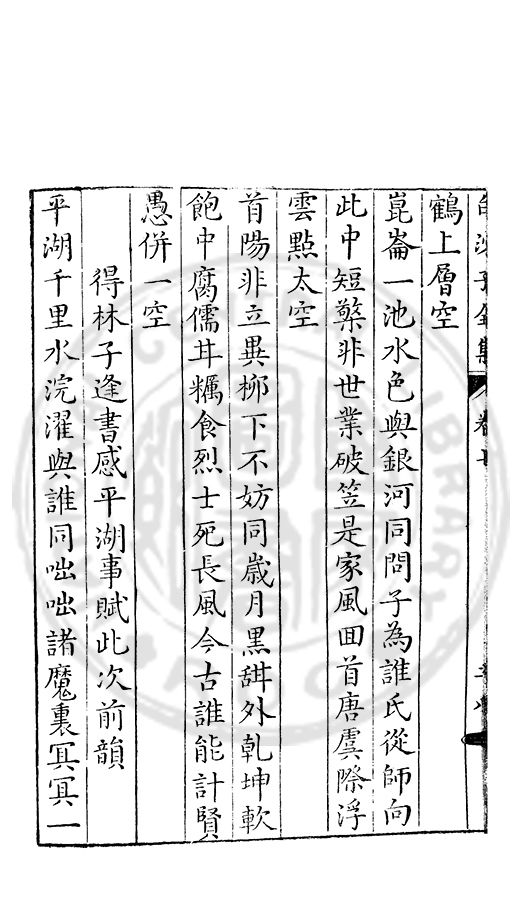 鶴上層空
崑崙一池水色與銀河同問子為誰氏從師向
此中短檠非世業破笠是家風回首唐虞際浮
雲點太空
首陽非立異柳下不妨同歲月黑甜外乾坤軟
飽中腐儒耳糲食烈士死長風今古誰能計賢
愚併一空
得林子逢書感平湖事賦此次前韻
平湖千里水浣濯與誰同咄咄諸魔裏冥冥一